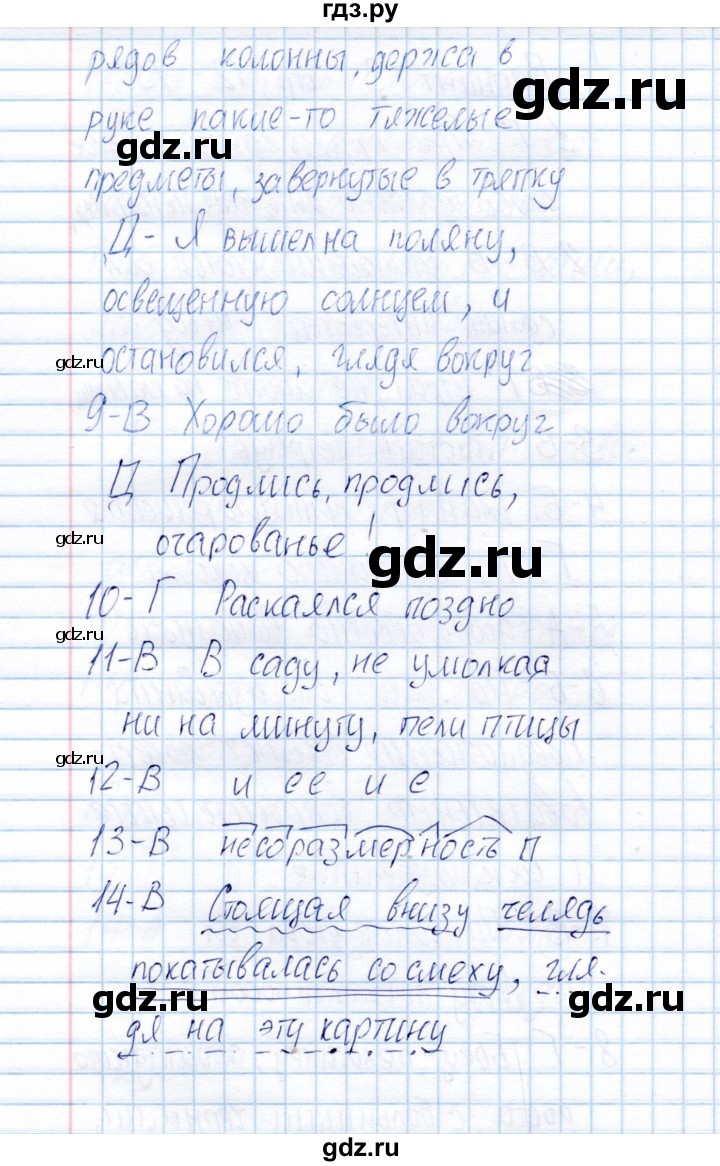 гдз.ру
рядов колонны, держа в
gdz.ru
руке какие-то тяжелые
gdz.ru
предметы, завернутые в тряпку
Д- Я вышел на поляну,
освещенную солнцем, и
gdz.ru
остановился, глядя вокруг
9-В Хорошо было вокруг
Д Продлись, продлись,
gdz.ru
очарованье!
gdz.ru
10-Г Раскаялся поздно
gdz.ru
11-В В саду, не умолкая
ни на минуту, пели птицы
gdz.ru
12-В и ее и е
13-В несоразмерность П
14-В Стоящая внизу челядь
покатывалась со смеху, гля-
gdz.ru
gdz.ru
дя на эту картину
gdz.ru